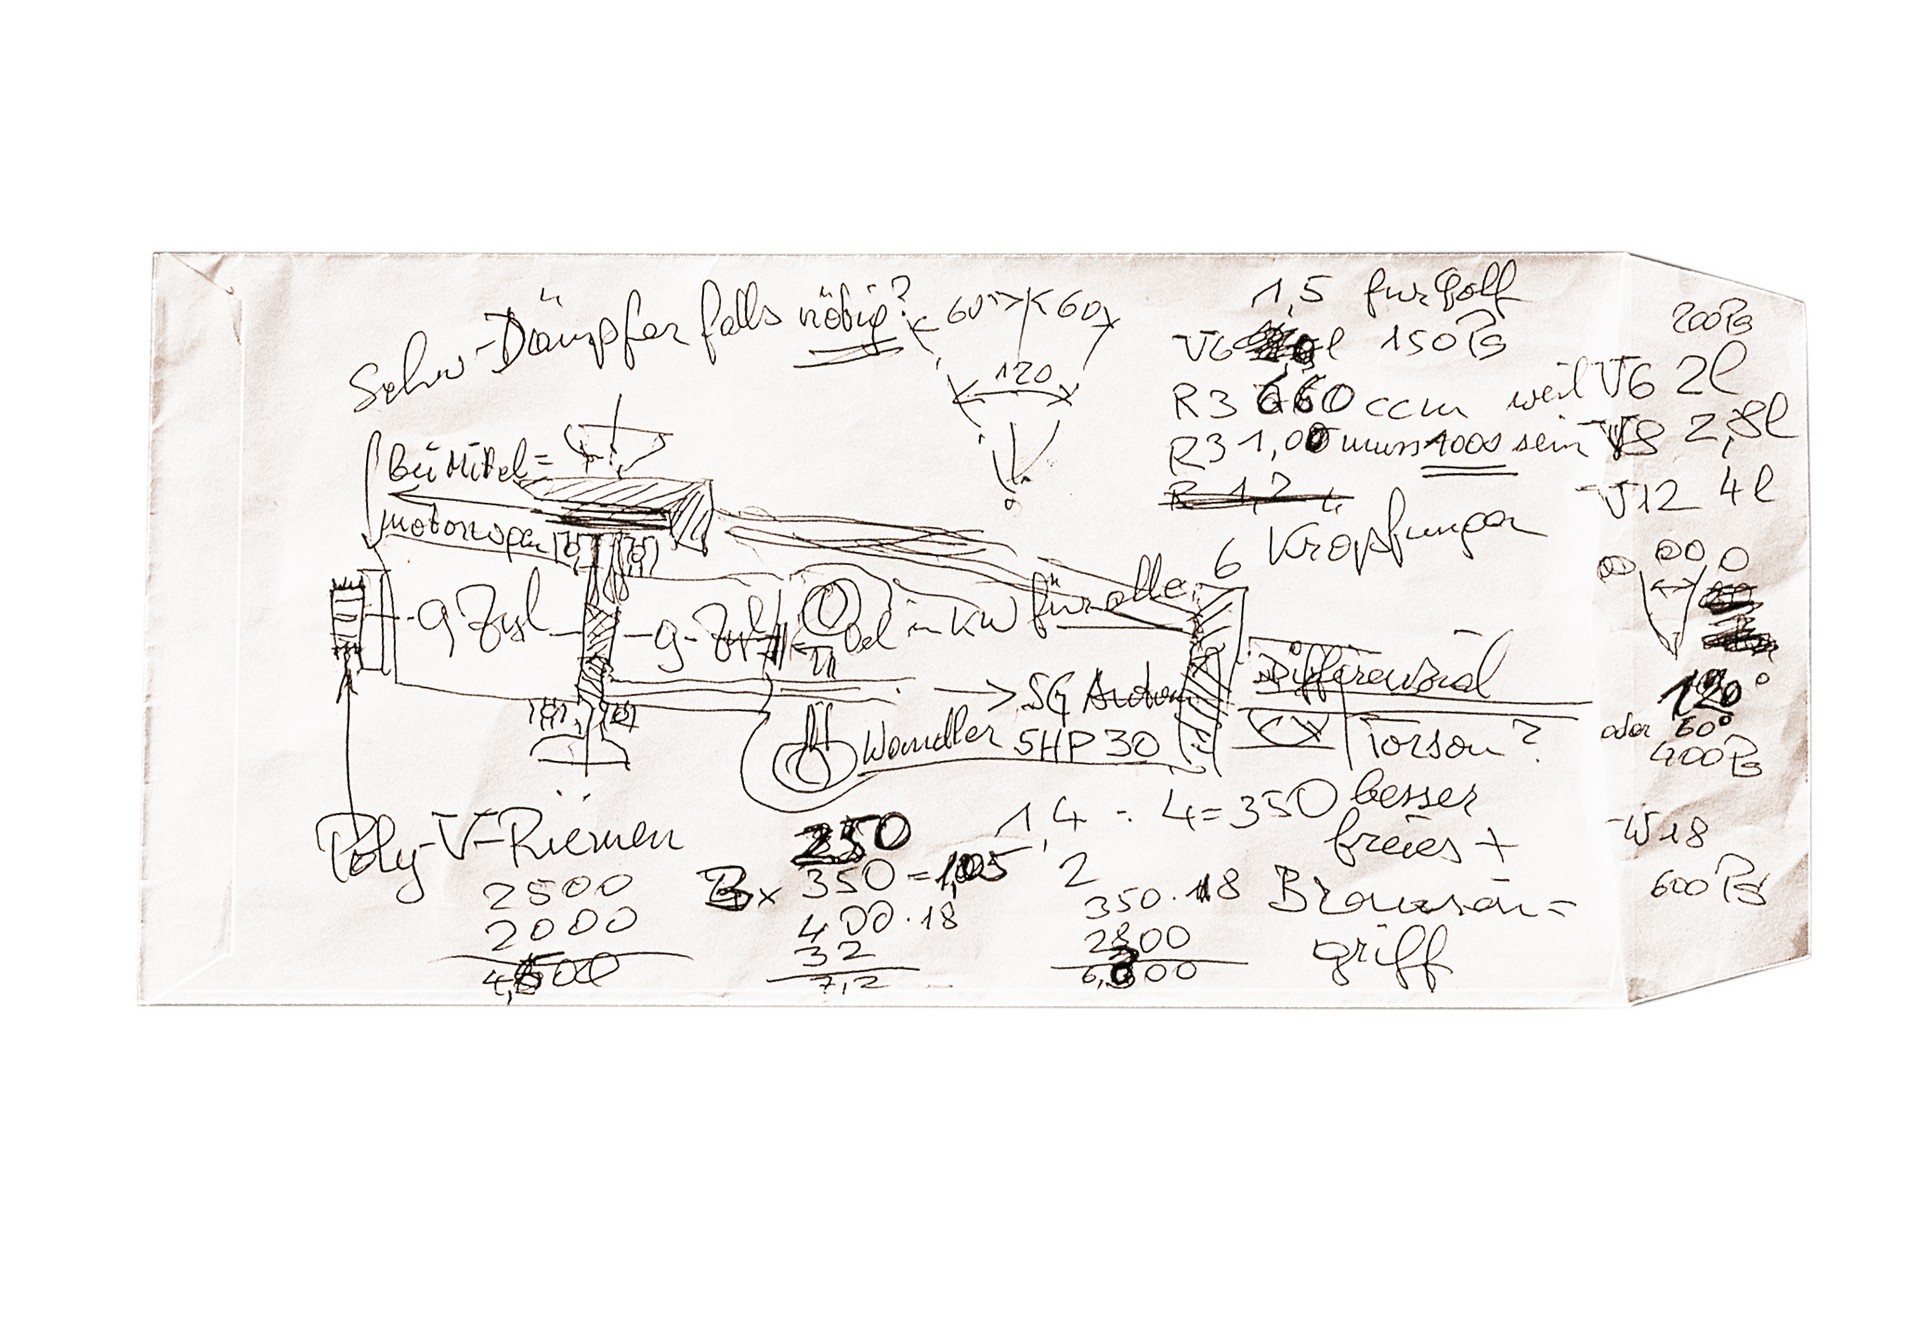 Schw-Dämpfer falls nötig?
60°
60
120
1,5 für Golf
V6 l 150 PS
R3 660 ccm weil
R3 1,00 muss 1000 sein
R 1,2 L
6 Kröpfungen
200 PS
V6 2l
V8 2,8l
V12 4l
00 0
120°
oder 60°
400 PS
W18
600 PS
Bei Mittel=
motorwagen
9 Zyl
9-Zyl
Öl in KW für alle
Wandler
5G Autom
5HP30
Differenzial
Torson?
Poly-V-Riemen
2500
2000
4,500
250
3x 350 = 1,05
400 . 18
32
7,2
1,4 : 4 = 350
2
350 . 18
2800
6,300
besser
freies +
Browsein=
griff